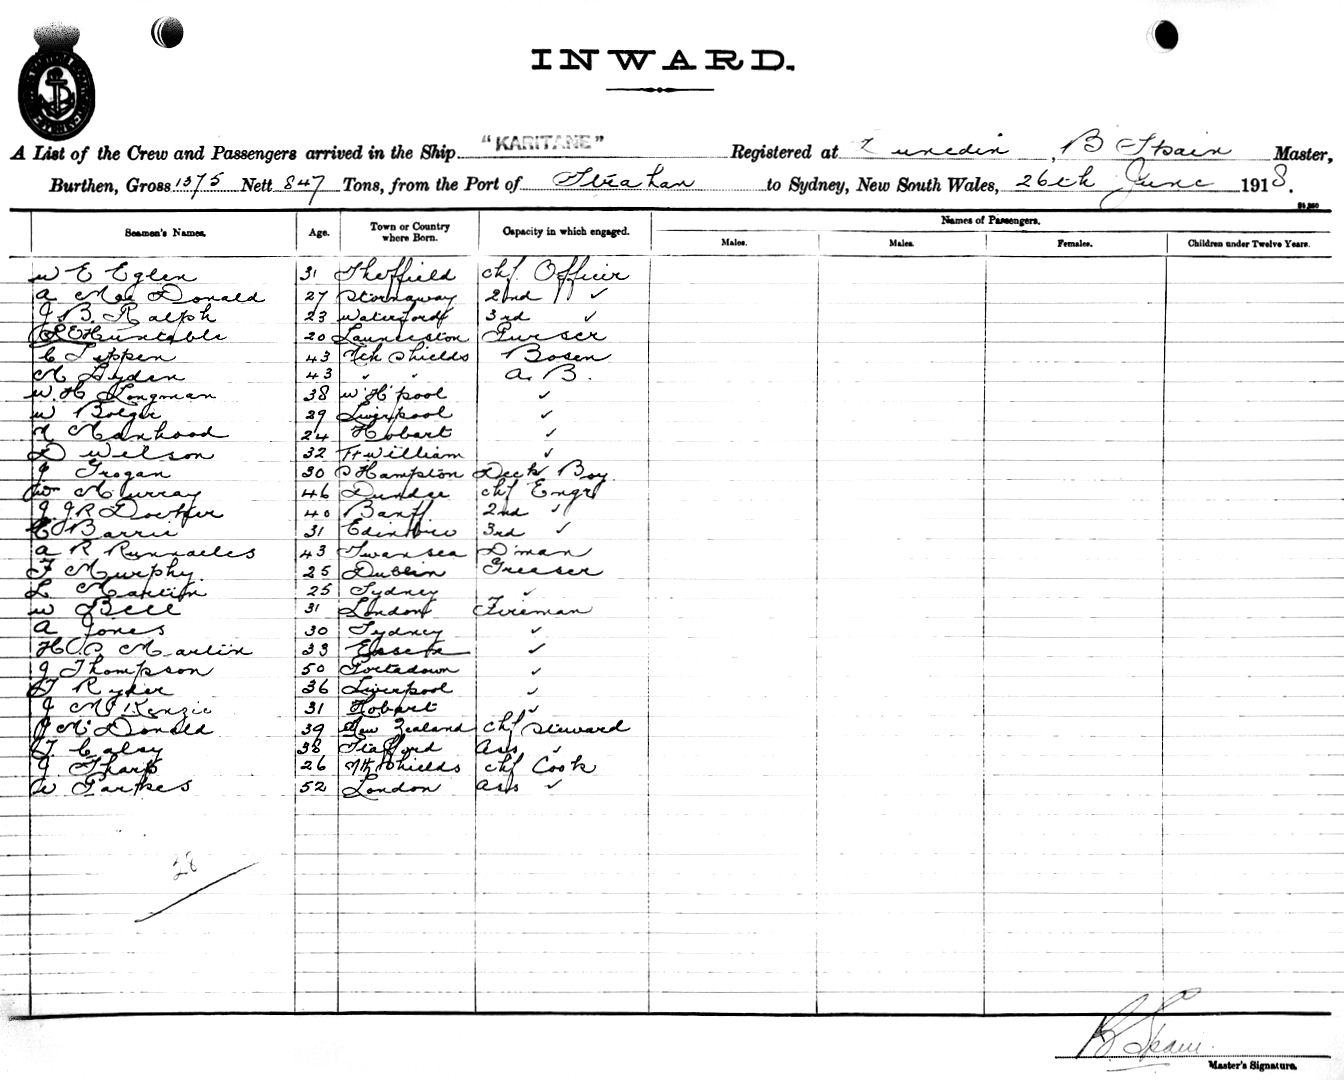 INWARD.
A List of the Crew and Passengers arrived in the Ship "KARITANE" Registered at Dunedin, B Spain Master,
Burthen, Gross 1375 Nett 847 Tons, from the Port of Strahan to Sydney, New South Wales, 26th June 1918.
Names of Passengers.
Seamen's Names. Age. Town or Country where Born. Capacity in which engaged. Males. Males. Females. Children under Twelve Years.
W E Eglen 31 Sheffield chf Officer
A Mac Donald 27 Stornaway 2nd ✓
J B. Ralph 23 Waterford 3rd ✓
Huntable 20 Launceston Purser
C Teppen 43 Nth Shields Bosen
M Hyden 43 " " A. B.
W. H Longman 38 W'H'pool ✓
W Bolger 29 Liverpool ✓
Manhood 24 Hobart ✓
D Wilson 32 Ft William ✓
J Grogan 30 S'Hampton Deck Boy
Wm Murray 46 Dundee chf Engr
J JR Docther 40 Banff 2nd ✓
C Barrie 31 Edinboro 3rd ✓
A R Runnacles 43 Swansea D'man
F Murphy. 25 Dublin Greaser
L Martin 25 Sydney ✓
W Bell 31 London Fireman
A Jones 30 Sydney ✓
Martin 33 Essex ✓
J Thompson 50 Portadown ✓
T Ryder 36 Liverpool ✓
J McKenzie 31 Hobart ✓
J McDonald 39 New Zealand Chf Steward
T. Calay 38 Stafford Ass ✓
J Tharp 26 Nth Shields chf Cook
W Parkes 52 London Ass ✓
28
B Spain.
Master's Signature.